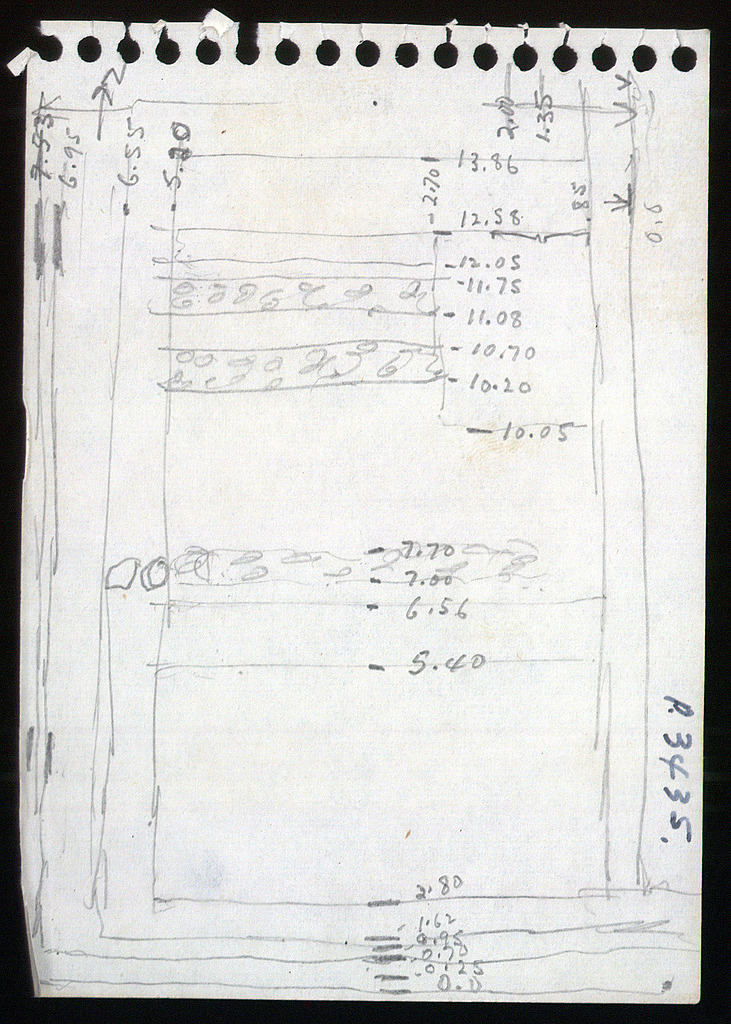 7.53
6.95
22
6.55
5.20
2.00
1.35
- 2.70
.85
0.0
- 13.86
12.58
- 12.05
- 11.75
- 11.08
- 10.70
- 10.20
- 10.05
- 7.70
- 7.00
- 6.56
- 5.40
R.3435.
2.80
1.62
0.95
0.75
0.25
0.0